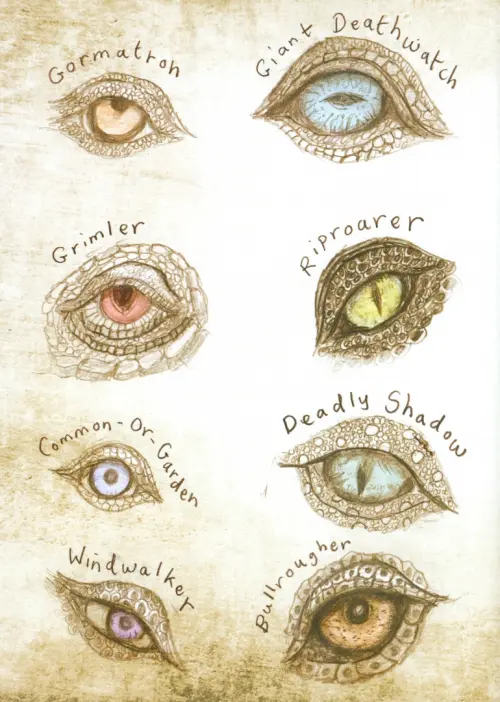 Gormatron
Giant Deathwatch
Grimler
Riproarer
Common-Or-Garden
Deadly Shadow
Windwalker
Bullrougher